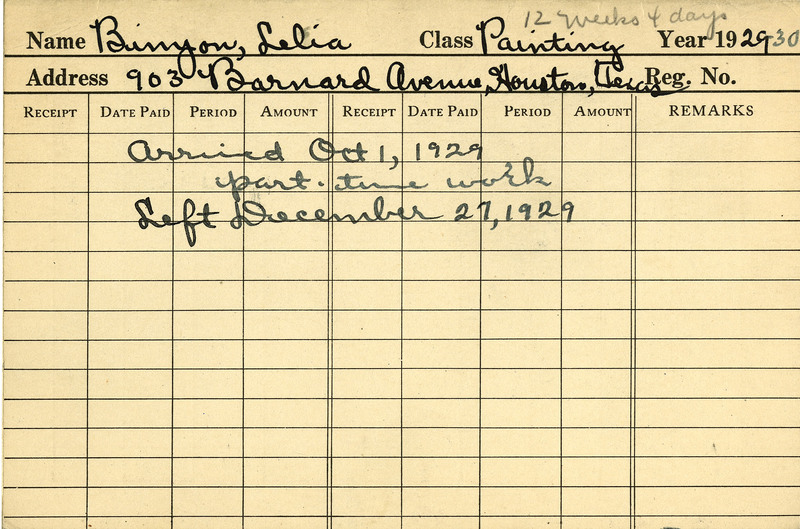 12 weeks 4 days
Name Bunyon, Lelia Class Painting Year 1929 30
Address 903 Barnard Avenue, Houston, Texas Reg. No.
RECEIPT DATE PAID PERIOD AMOUNT RECEIPT DATE PAID PERIOD AMOUNT REMARKS
Arrived Oct 1, 1929
part-time work
Left December 27, 1929